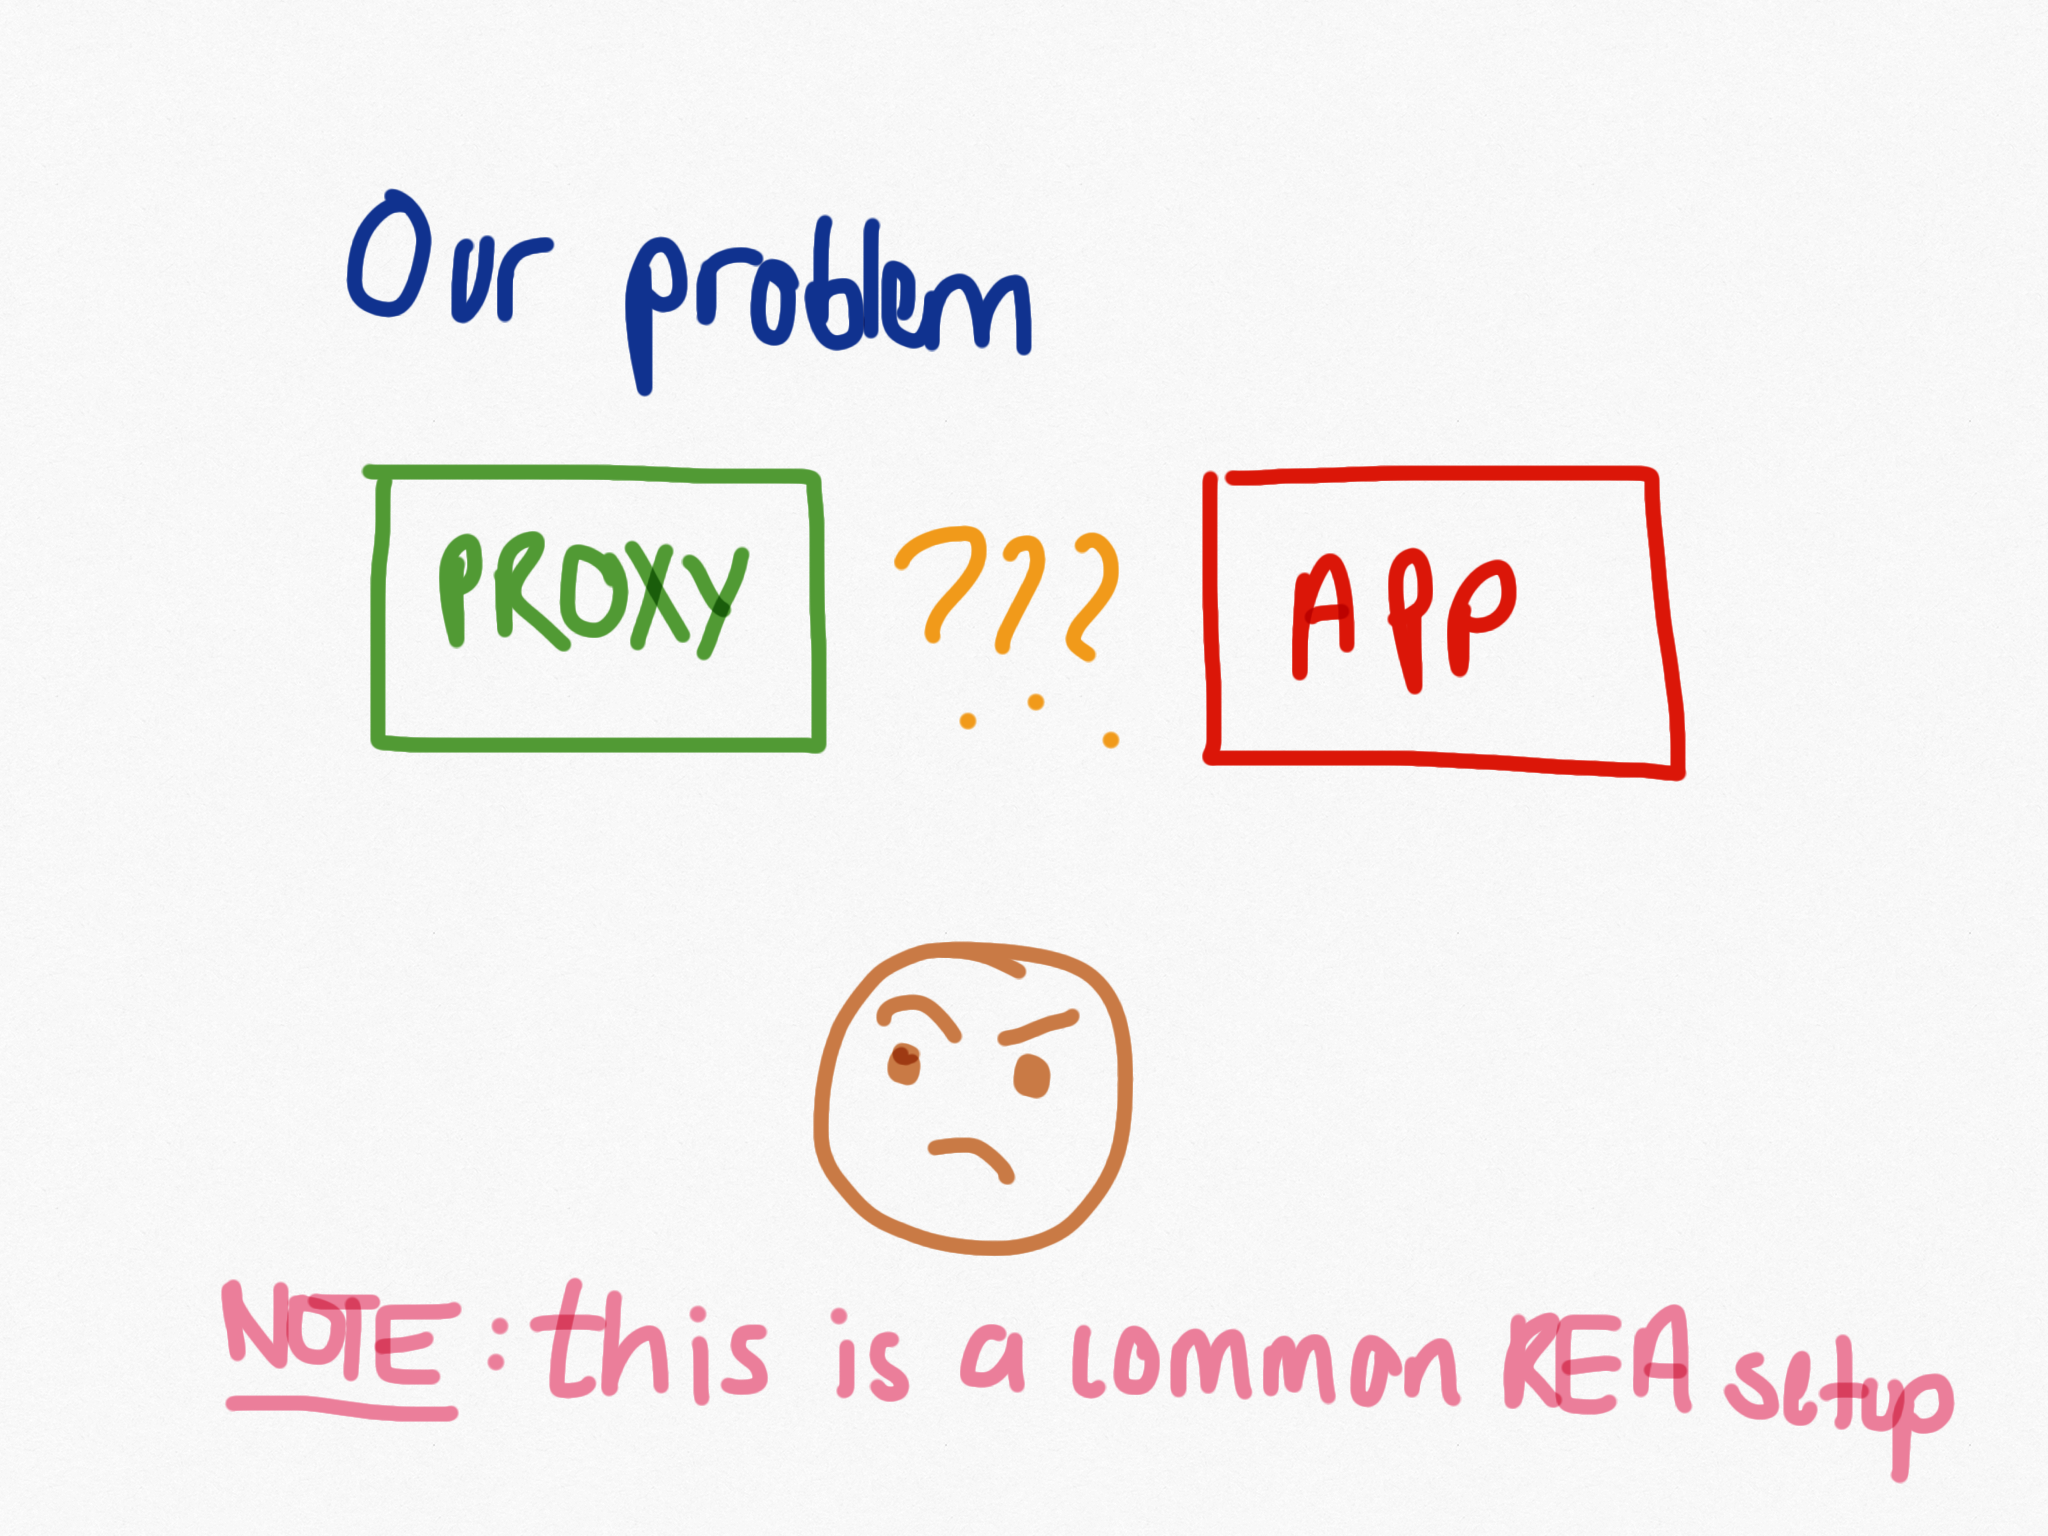 Our problem
PROXY ??? APP
NOTE: this is a common REA setup